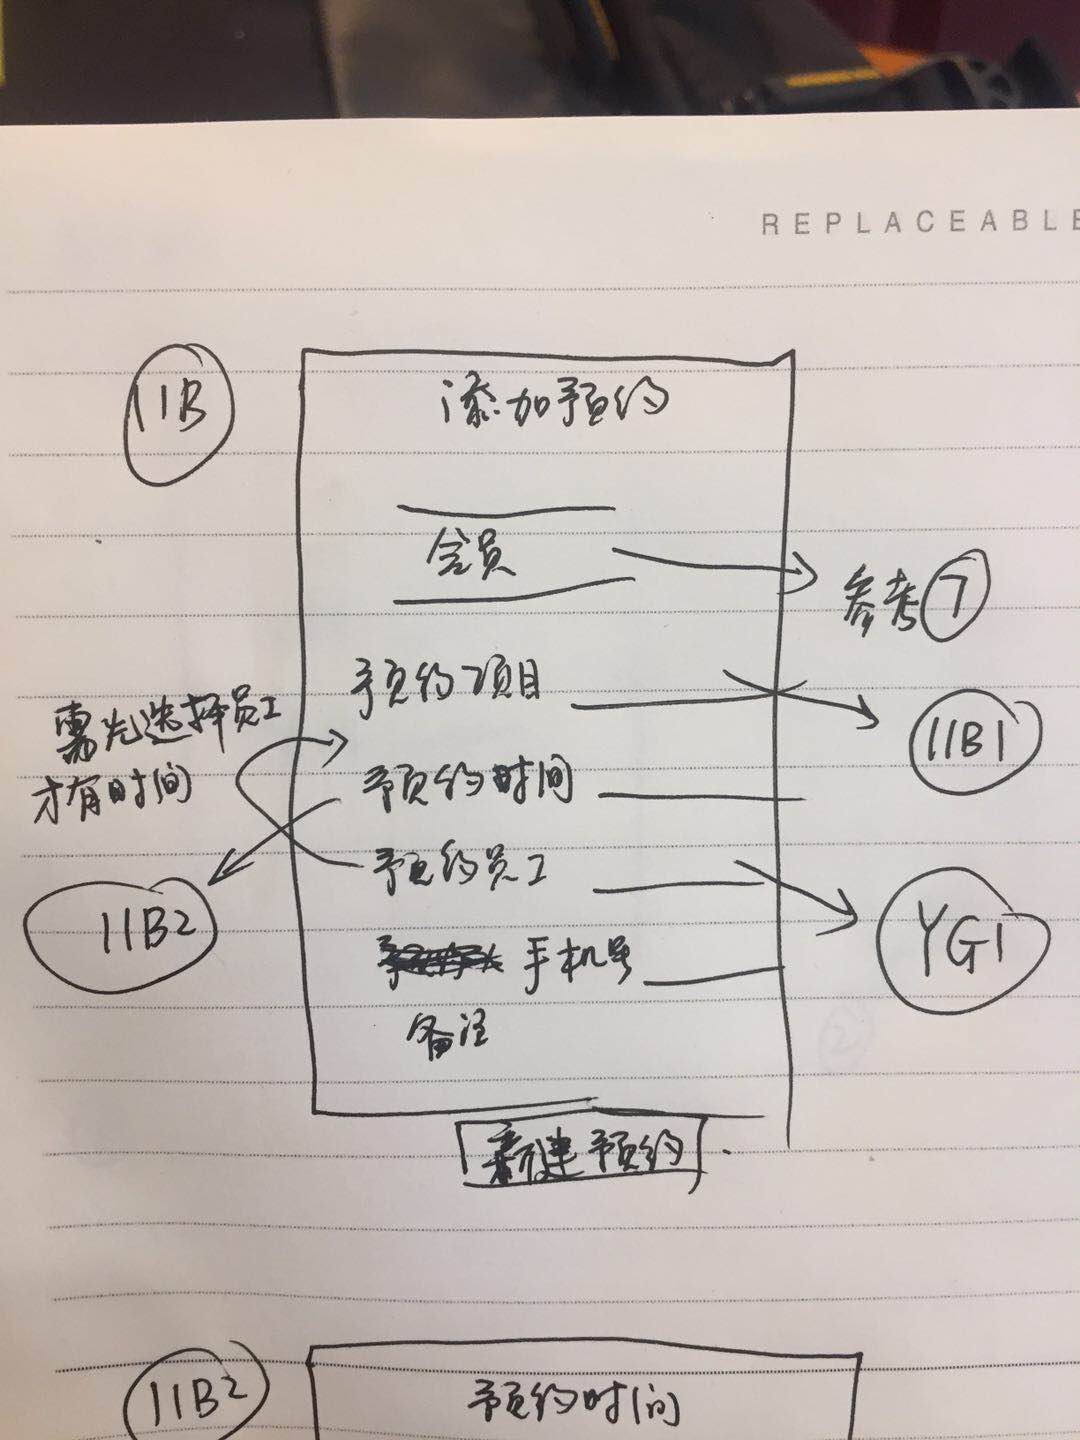 REPLACEABLE
11B
添加预约
会员
参考 7
预约项目
11B1
需先选择员工
才有时间
预约时间
预约员工
11B2
YG1
手机号
备注
新建预约
11B2
预约时间